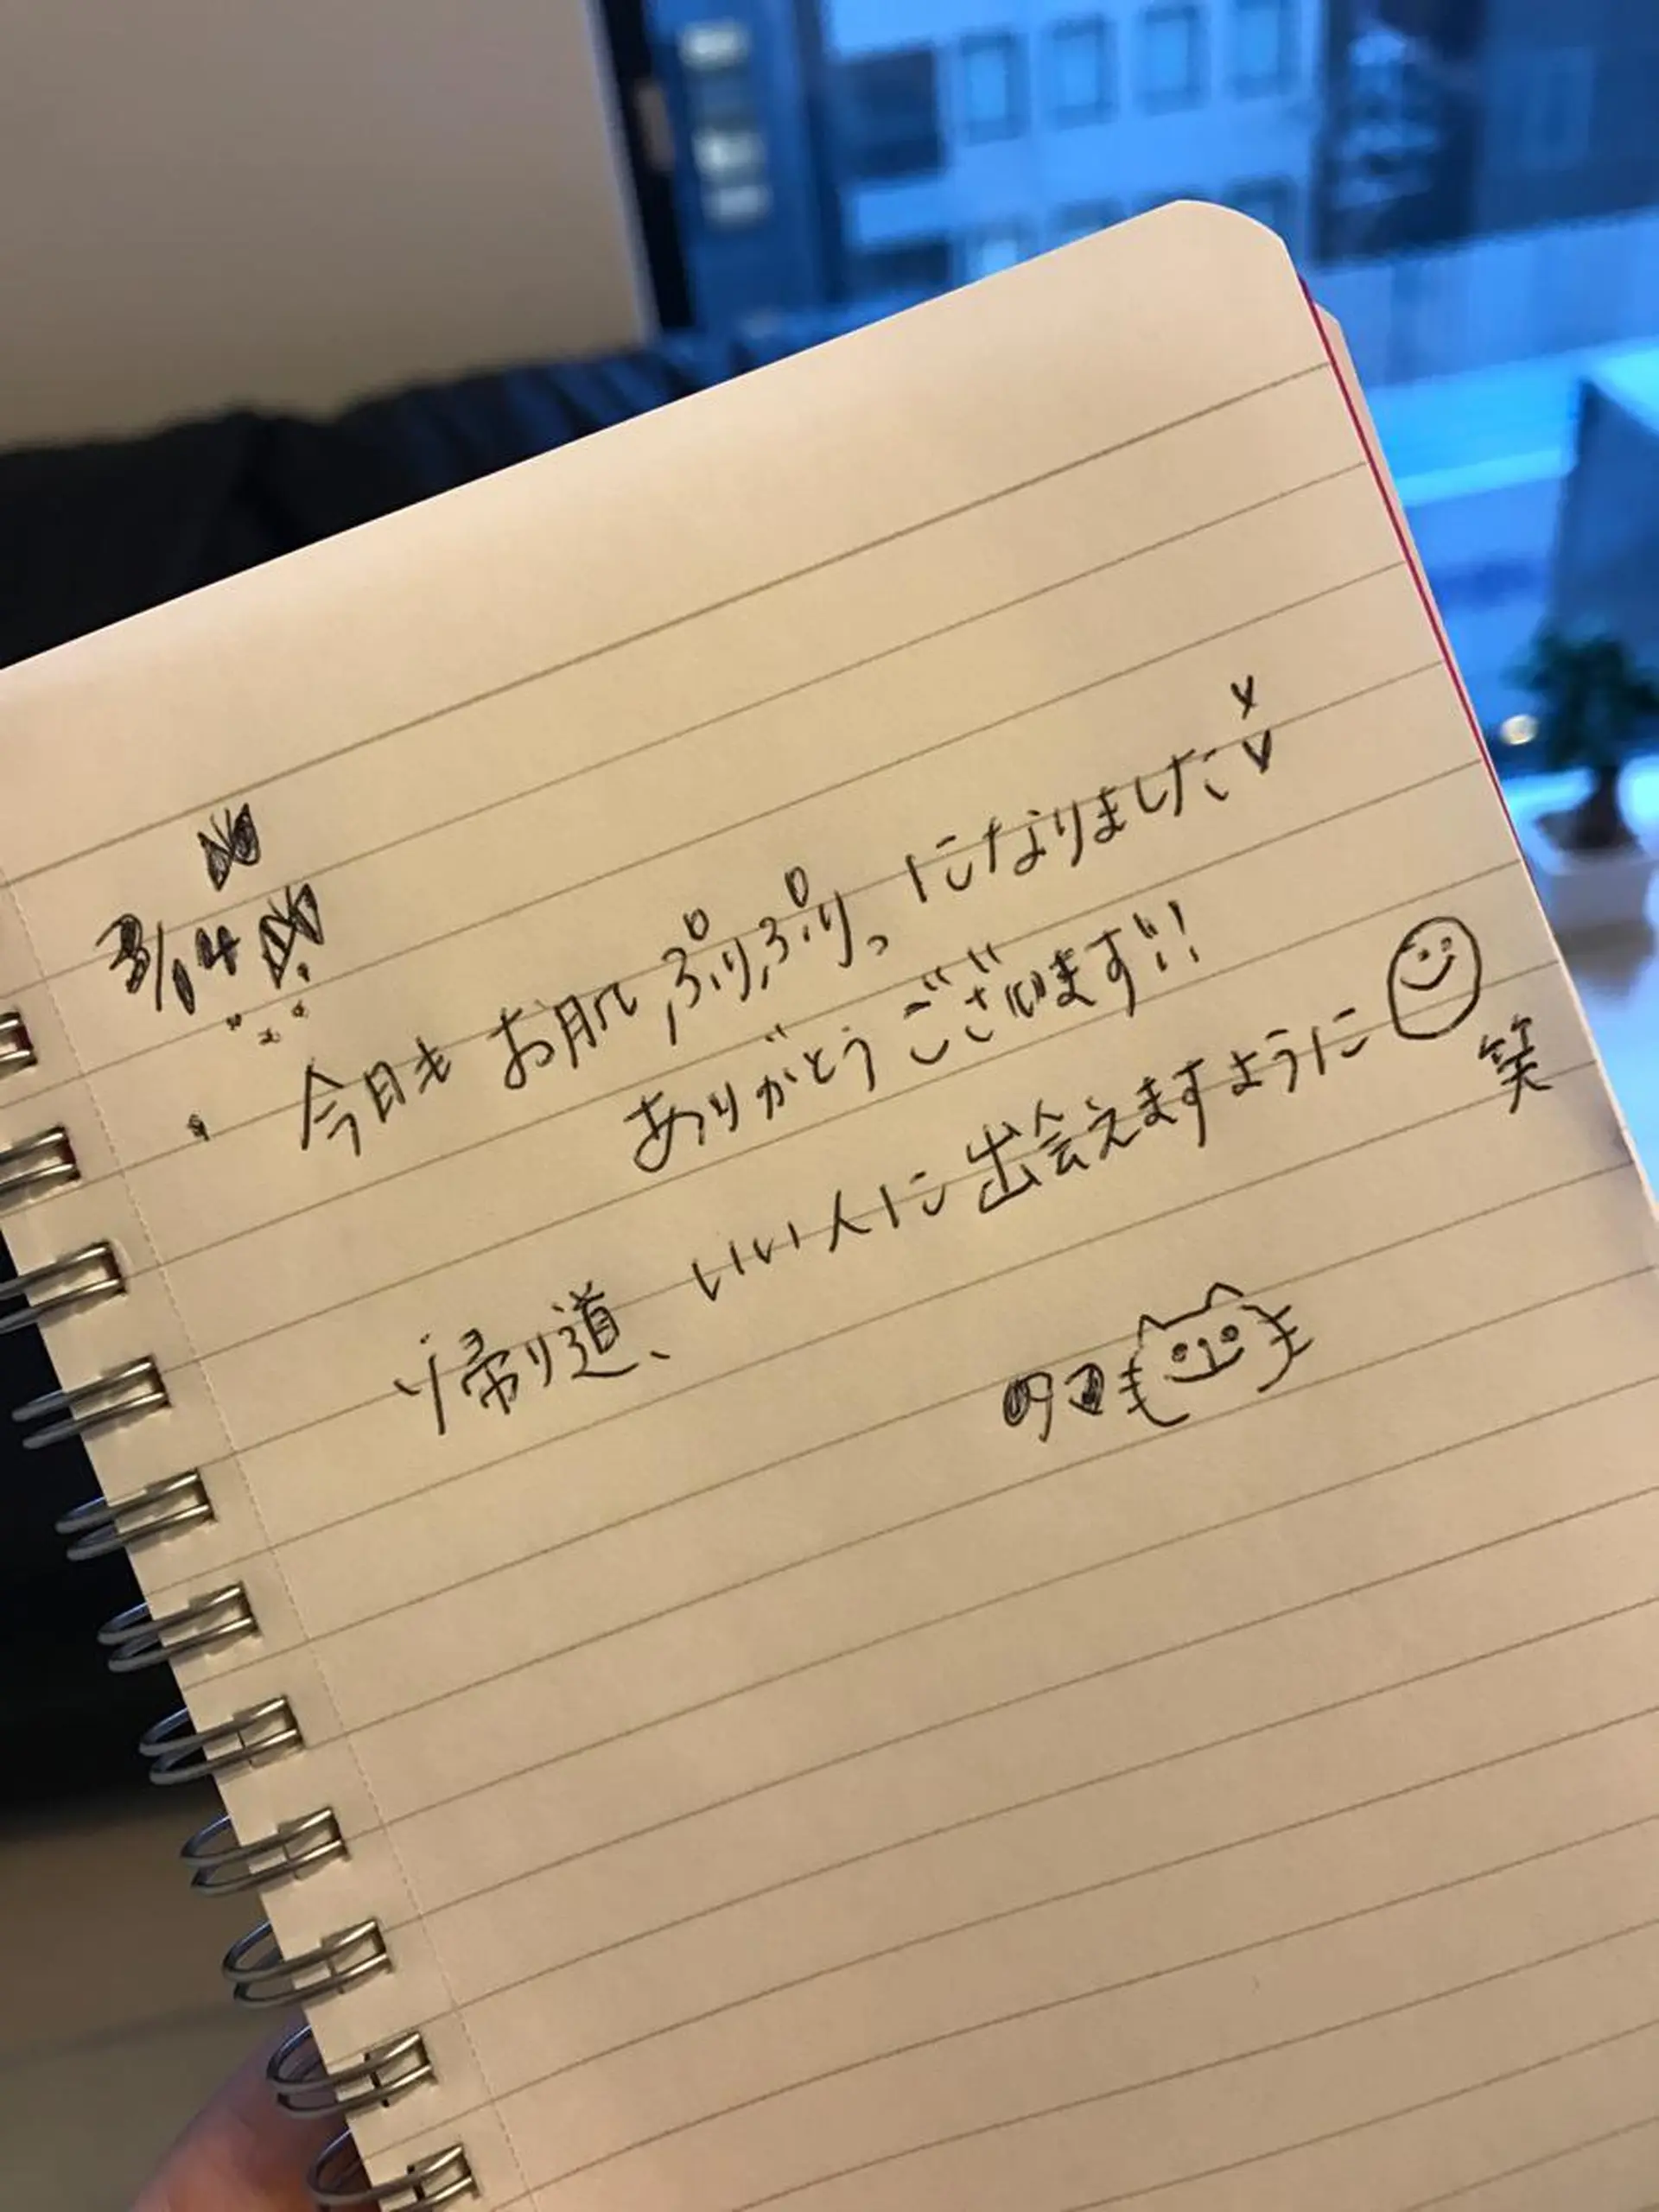 3/14
・今日も お肌 ぷりぷりっ になりました
ありがとうございます!!
帰り道、いい人に出会えますように
笑